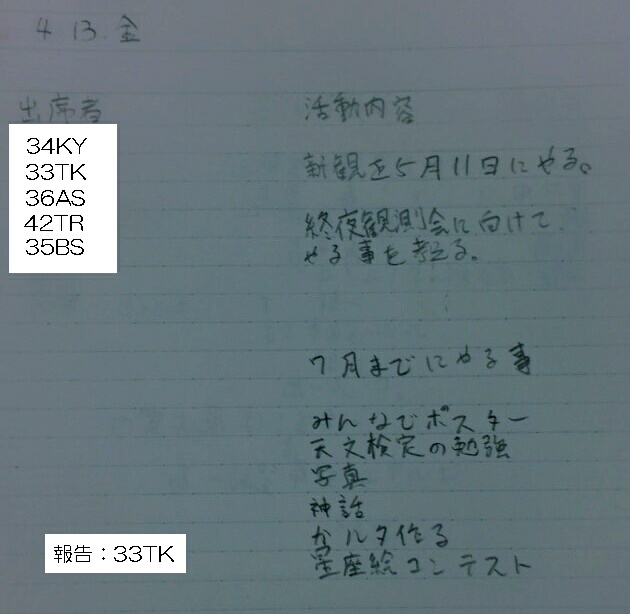 4 13. 金
出席者
34KY
33TK
36AS
42TR
35BS
活動内容
新観を5月11日にやる。
終夜観測会に向けて
やる事を考える。
7月までにやる事
みんなでポスター
天文検定の勉強
写真
神話
カルタ作る
星座絵コンテスト
報告：33TK